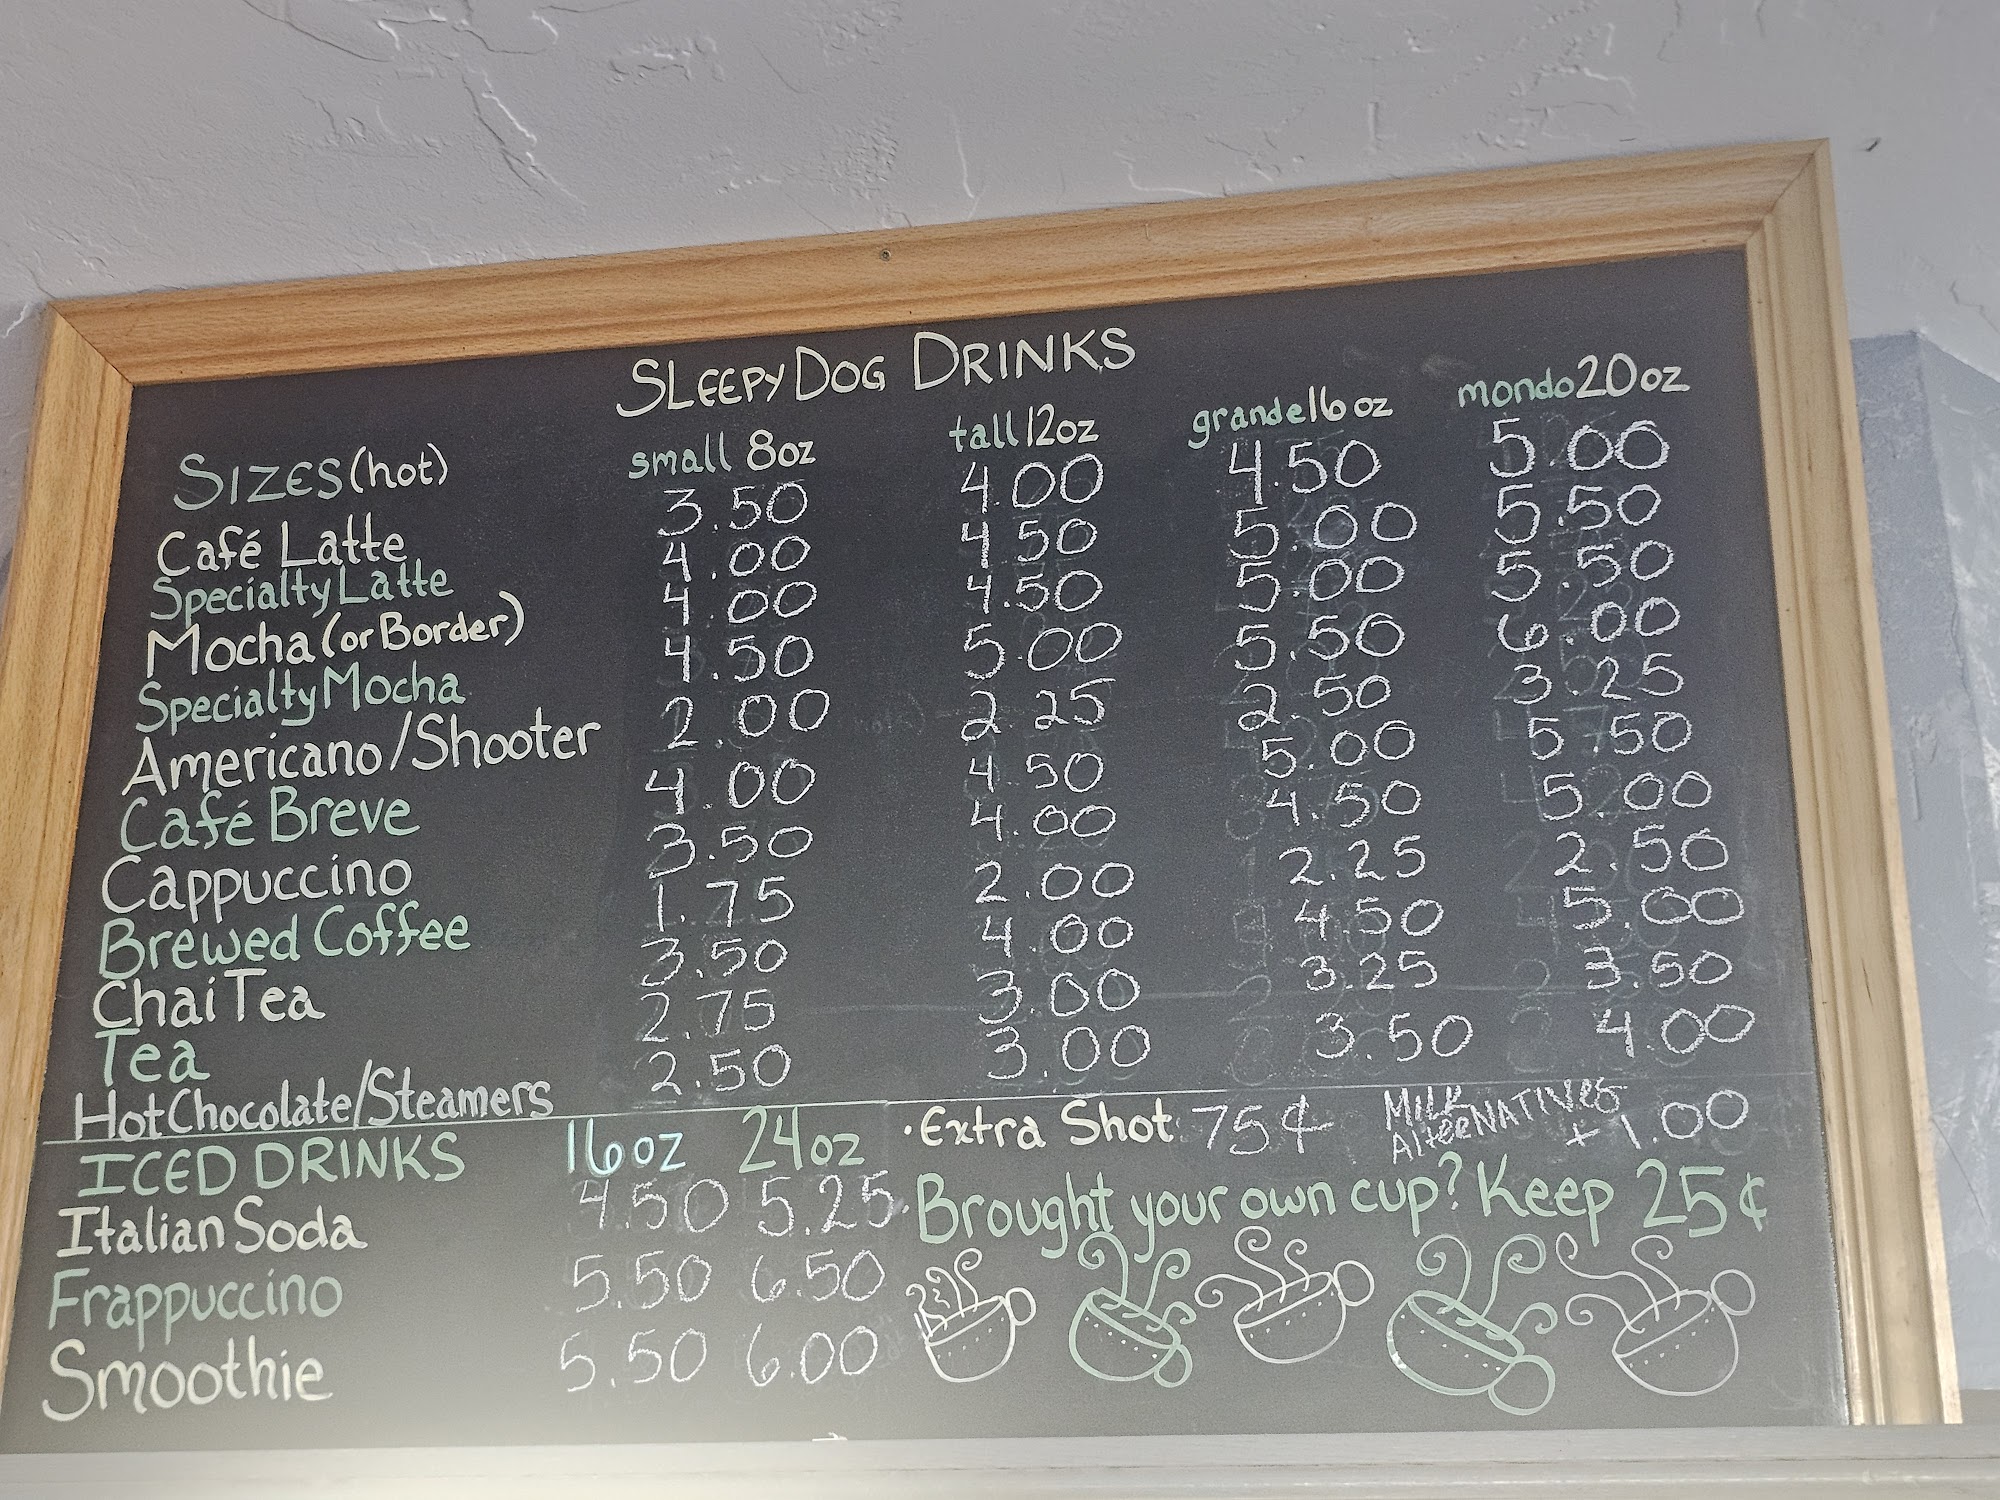 SLEEPY DOG DRINKS
SIZES (hot) small 8oz tall 12oz grande 16oz mondo 20oz
Café Latte 3.50 4.00 4.50 5.00
Specialty Latte 4.00 4 50 5.00 5.50
Mocha (or Border) 4.00 4.50 5.00 5.50
Specialty Mocha 4.50 5.00 5.50 6.00
Americano/Shooter 2.00 2 25 2.50 3.25
Café Breve 4.00 4 50 5.00 5.50
Cappuccino 3.50 4.00 4.50 5.00
Brewed Coffee 1.75 2.00 2.25 2.50
Chai Tea 3.50 4.00 4.50 5.00
Tea 2.75 3.00 3.25 3.50
Hot Chocolate/Steamers 2.50 3.00 3.50 4.00
ICED DRINKS 16oz 24oz
Italian Soda 4.50 5.25
Frappuccino 5.50 6.50
Smoothie 5.50 6.00
• Extra Shot 75¢
MILK
AlteeNATIVES + 1.00
• Brought your own cup? Keep 25¢